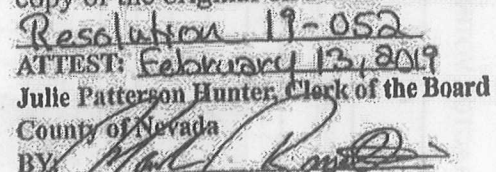 copy of the original
Resolution 19-052
ATTEST: February 13, 2019
Julie Patterson Hunter, Clerk of the Board
County of Nevada
BY: